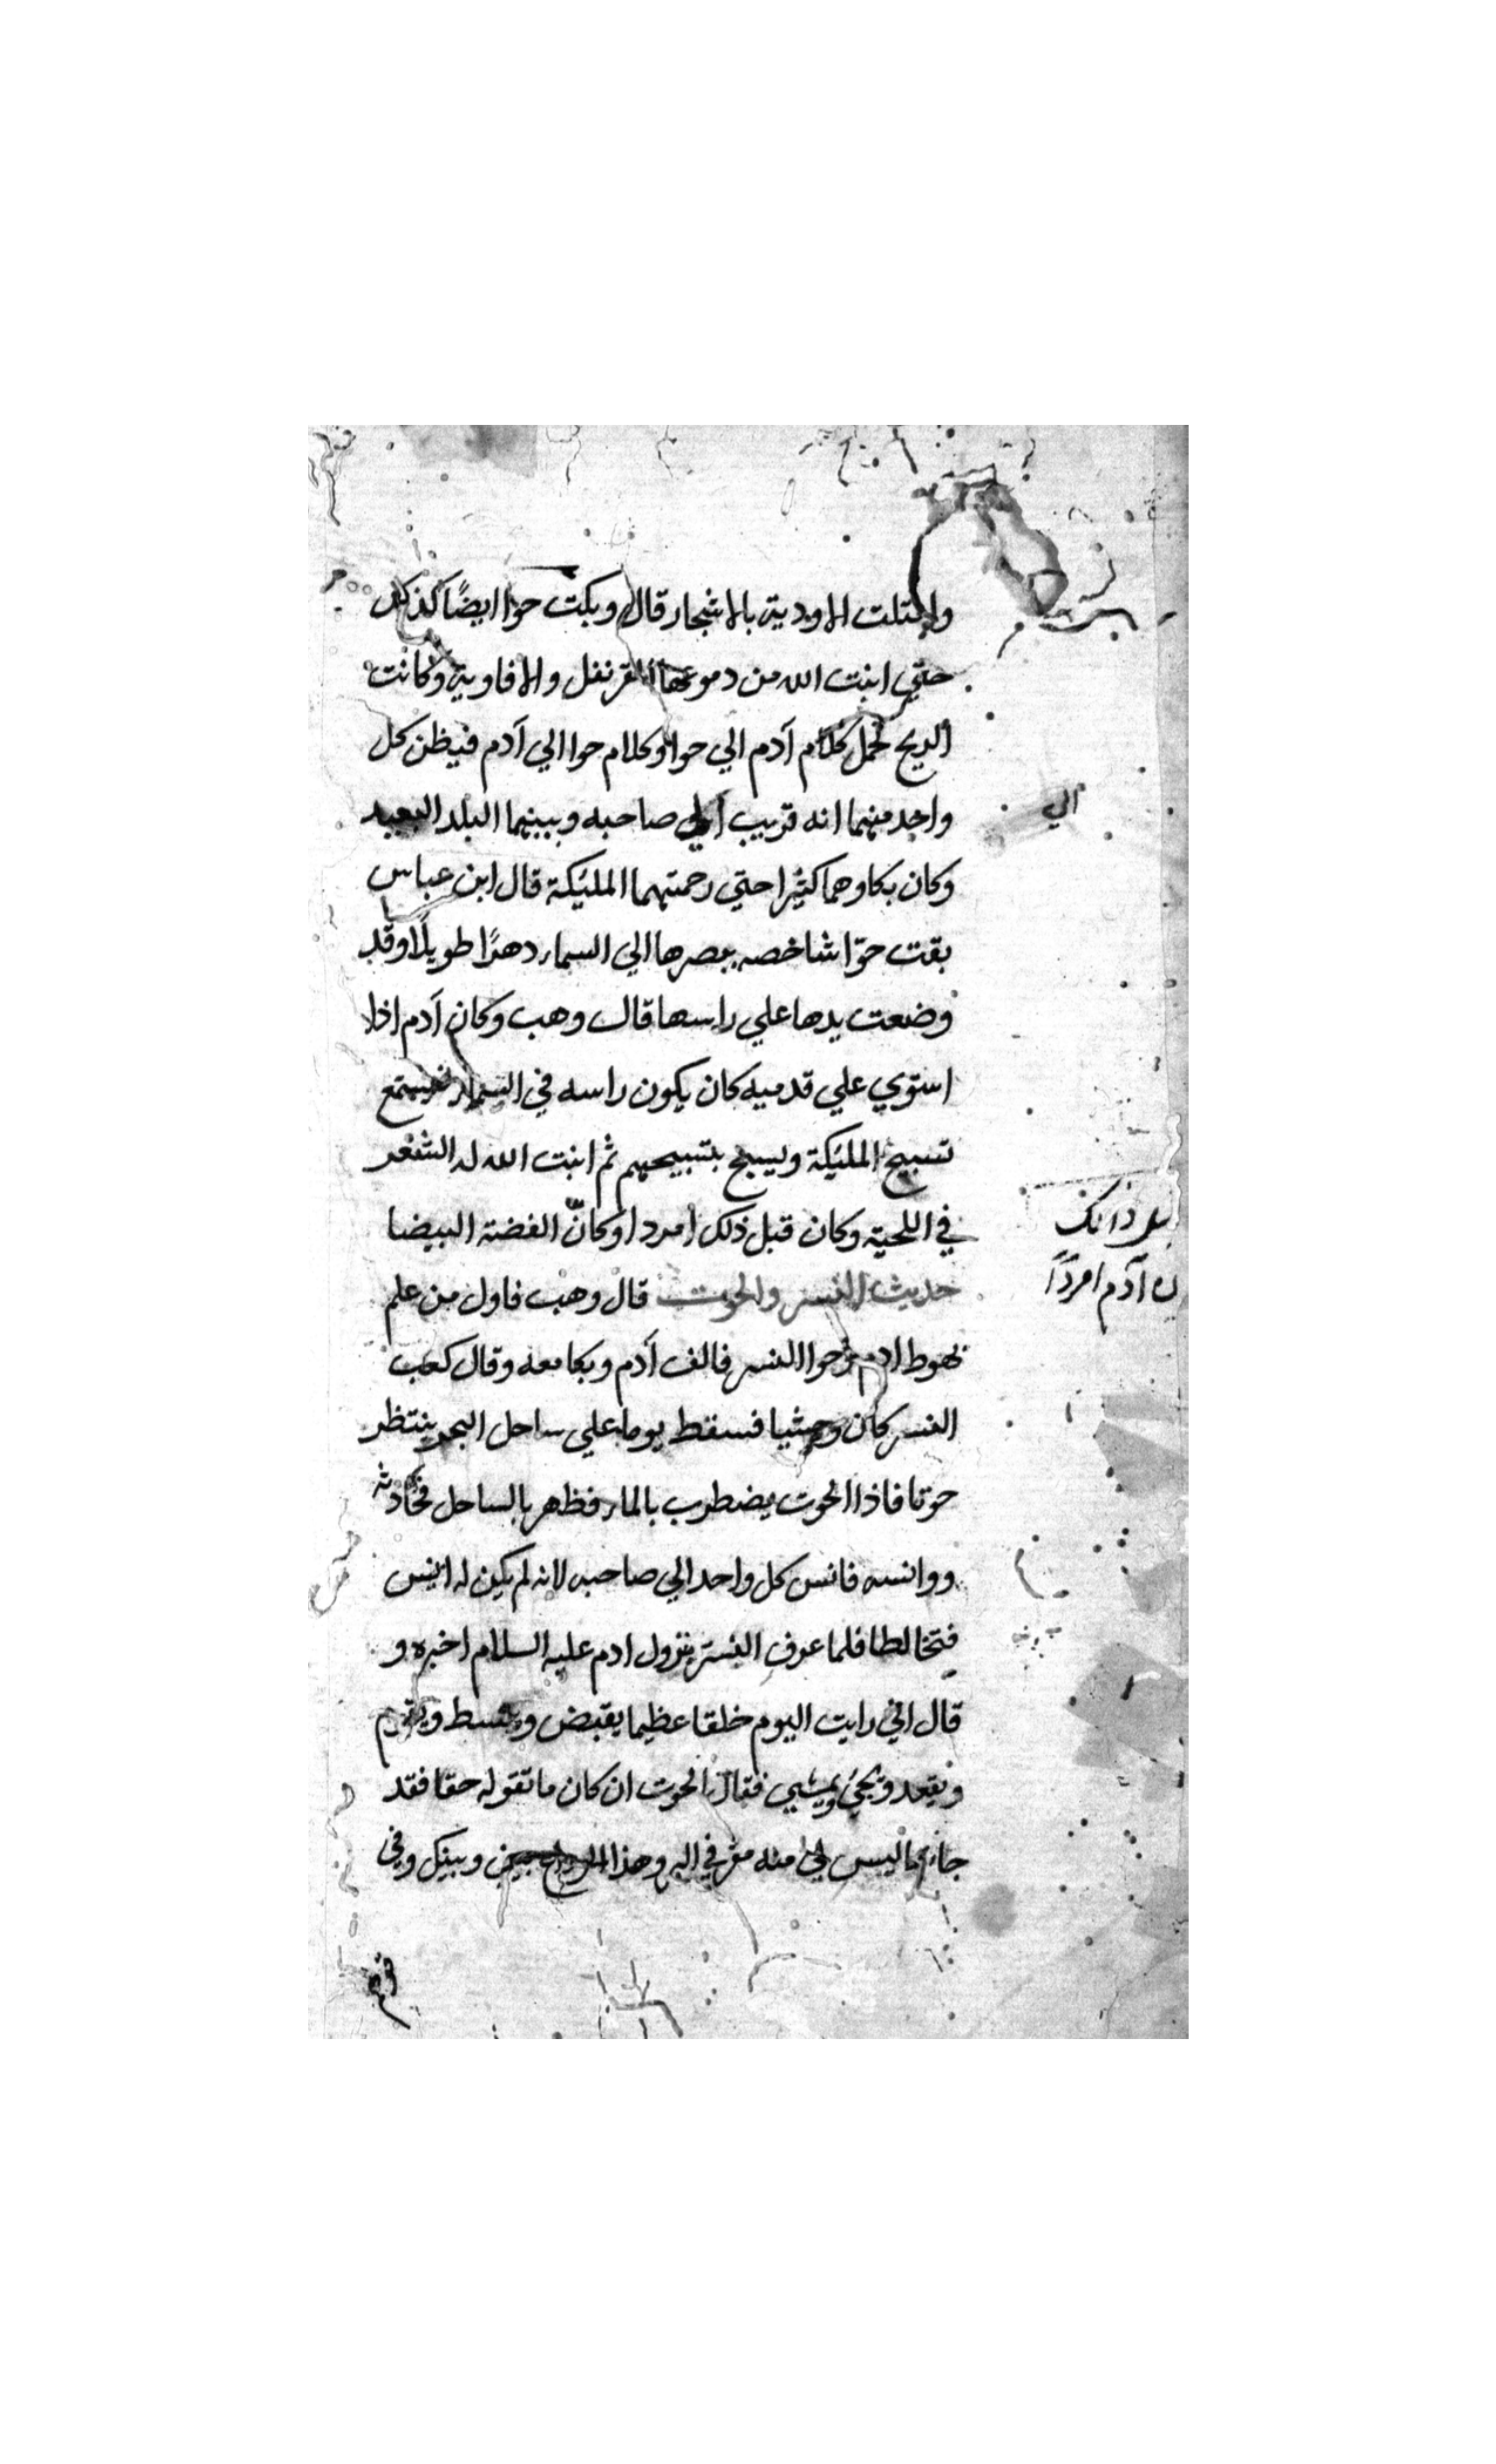 وامتلت الاودية بالاشجار قال وبكت حوا ايضًا كذلك
حتي انبت الله من دموعها القرنفل والافاوية وكانت
الريح تحمل كلام آدم الي حوا وكلام حوا الي آدم فيظن كل
واحد منهما انه قريب الي صاحبه وبينهما البلد البعيد
الي
وكان بكاوهما كثيرا حتي رحمتهما المليكة قال ابن عباس
بقت حوّا شاخصه ببصرها الي السماء دهرًا طويلًا وقد
وضعت يدها علي راسها قال وهب وكان آدم اذا
استوي علي قدميه كان يكون راسه في السماء فيستمع
تسبيح المليكة ويسبح بتسبيحهم ثم انبت الله له الشعر
في اللحية وكان قبل ذلك امردا وكانّ الفضة البيضا
آدم امردًا
حديث النسر والحوت قال وهب فاول من علم
بهوط ادم وحوا النسر فالف آدم وبكا معه وقال كعب
النسر كان وحشيا فسقط يوما علي ساحل البحر ينتظر
حوتا فاذا الحوت يضطرب بالماء فظهر بالساحل فحادثه
ووانسه فانس كل واحد الي صاحبه لانه لم يكن له انيس
فتخالطا فلما عرف النسر بنزول ادم عليه السلام اخبره و
قال اني رايت اليوم خلقا عظيما يقبض ويبسط ويقوم
ويقعد ويجئ ويمشي فقال الحوت ان كان ما تقوله حقا فقد
جاء ما ليس لي منه مفر في البر وهذا بيني وبينك وفي